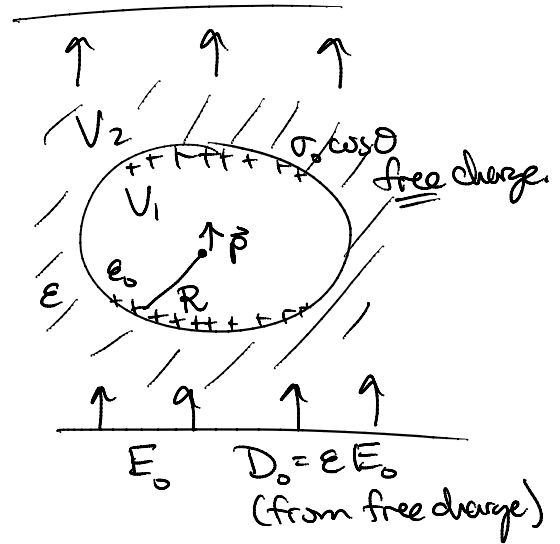 V₂
σ₀ cosθ
free charge.
+ + + + + + + +
V₁
p⃗
ε₀
ε
R
+ + + + + + + + +
E₀ D₀ = εE₀
(from free charge)